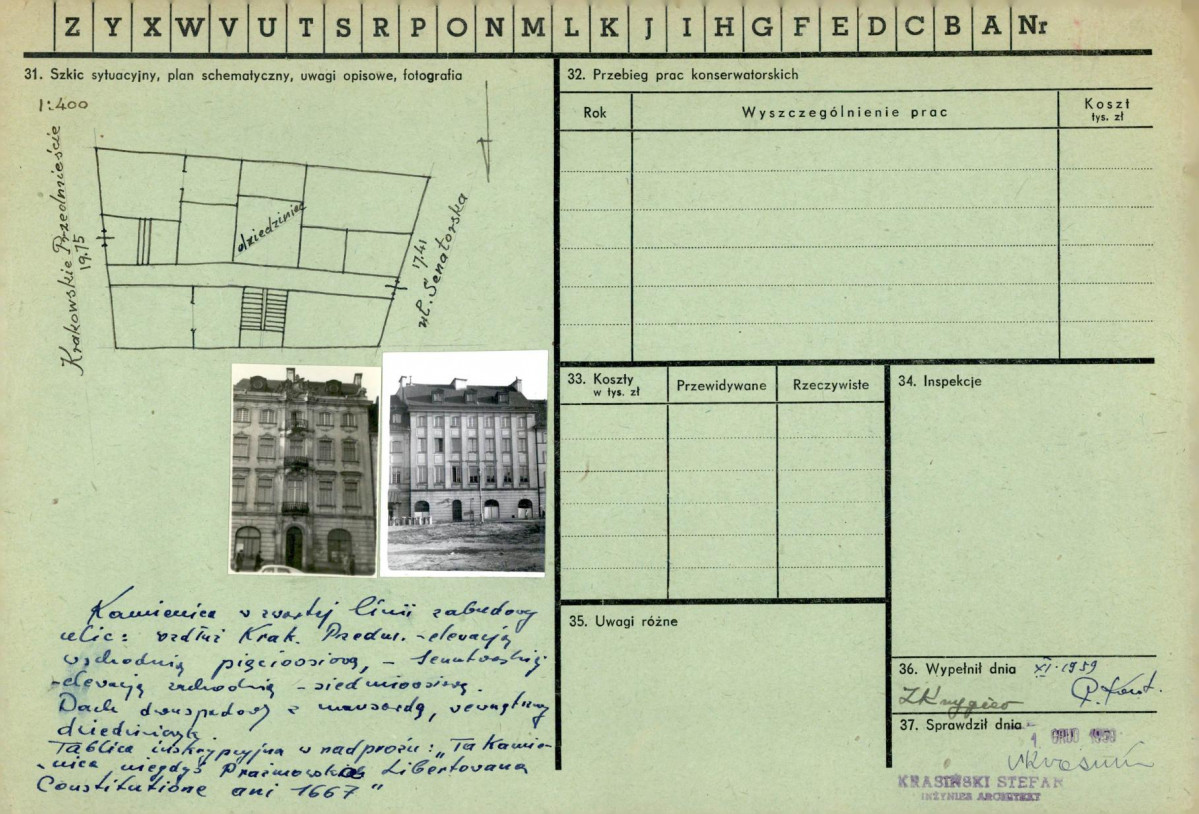 Z Y X W V U T S R P O N M L K J I H G F E D C B A Nr
31. Szkic sytuacyjny, plan schematyczny, uwagi opisowe, fotografia
1:400
Krakowskie Przedmieście
19.75
dziedziniec
17.41
ul. Senatorska
Kamienica w zwartej linii zabudowy
ulic: wzdłuż Krak. Przedm. - elewacją
wschodnią pięcioosiową, - Senatorskiej
- elewacją zachodnią - siedmioosiową.
Dach dwuspadowy z mansardą, wewnątrz
dziedziniec.
Tablica inskrypcyjna w nadprożu: "Ta Kamie-
-nica niegdyś Prażmowskie Libertowana
Constitutione ani 1667"
32. Przebieg prac konserwatorskich
Rok
Wyszczególnienie prac
Koszt
tys. zł
33. Koszty
w tys. zł
Przewidywane
Rzeczywiste
34. Inspekcje
35. Uwagi różne
36. Wypełnił dnia XI. 1959
37. Sprawdził dnia
1 GRUD 1959
KRASIŃSKI STEFAN
INŻYNIER ARCHITEKT